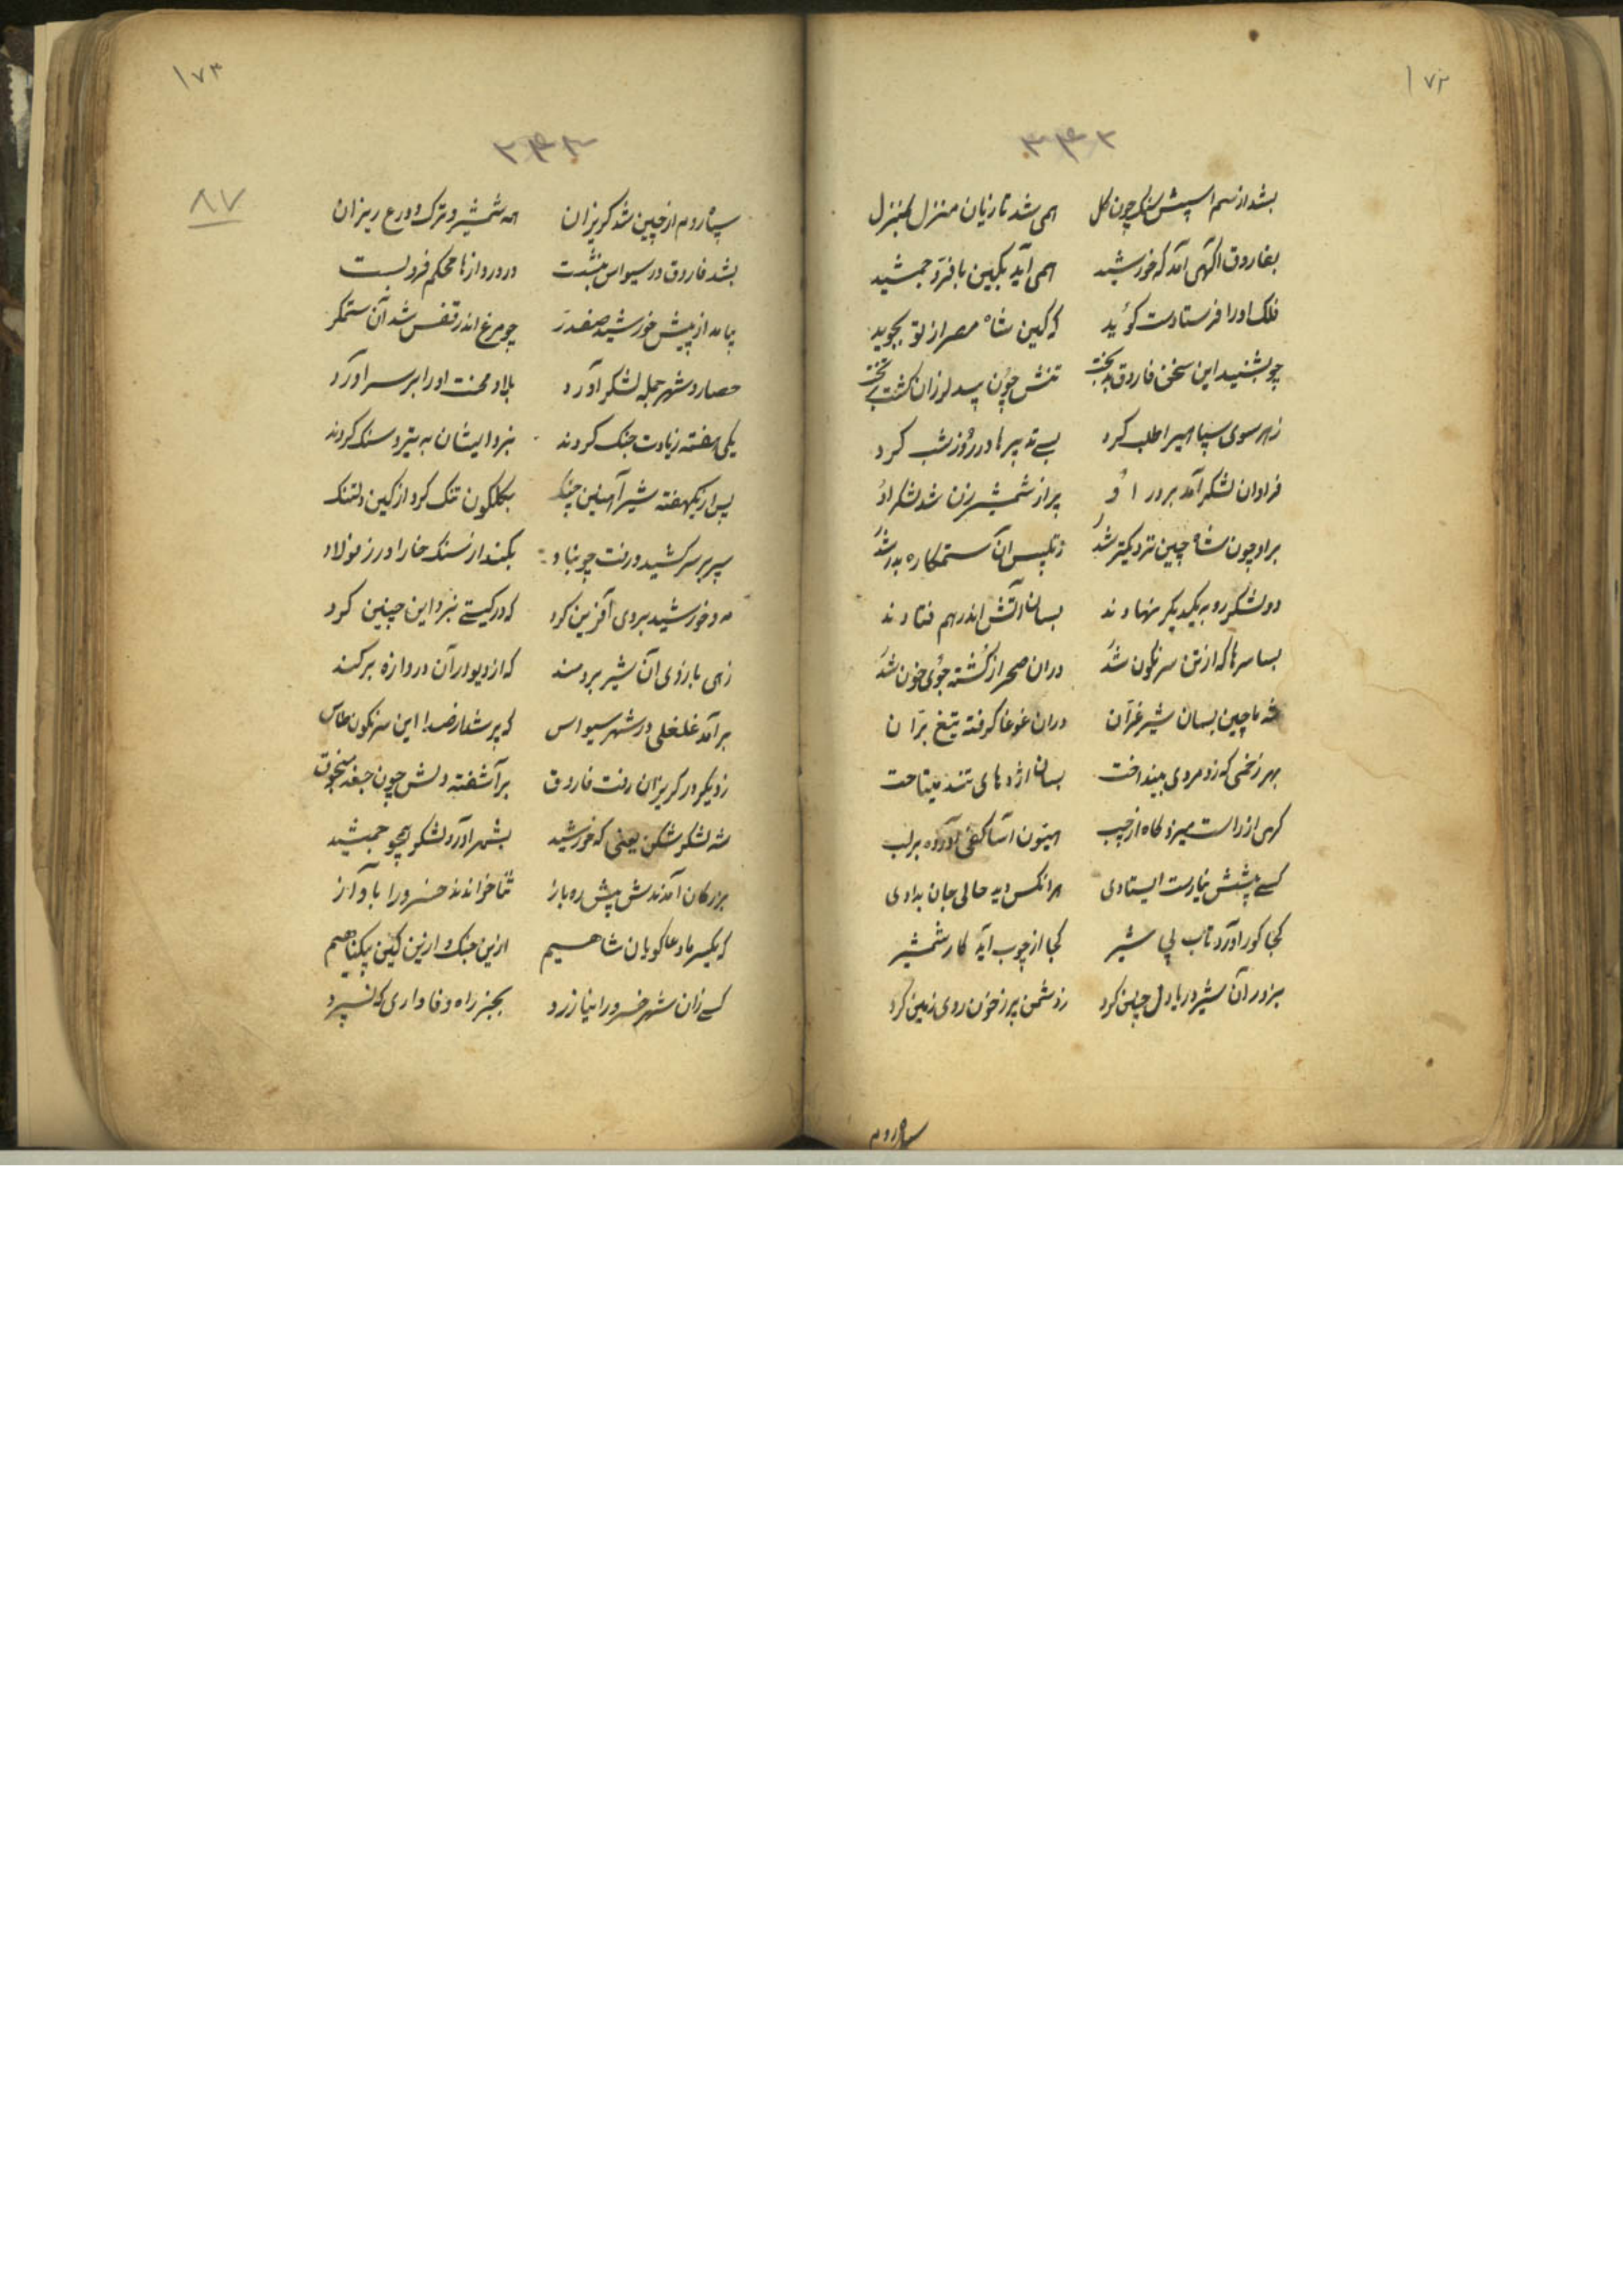 ۱۷۲
۳۴۲
بشد از سم اسپش سنک چون کل همی شد تازیان منزل بمنزل
بفاروق اکهی آمد که خورشید همی آید بکین با فرّ جمشید
فلک او را فرستادست کوئید که کین شاه مصر از تو بجوید
چو بشنید این سخن فاروق بدبخت تنش چون بید لرزان کشت بر تخت
زهر سوی سپاهیرا طلب کرد بسے تدبیرها در روز شب کرد
فراوان لشکر آمد بر در اوُ پر از شمشیر زن شد لشکر اوُ
بر او چون شاه چین نزدیکتر شد ز آن ستمکاره بدر شد
دو لشکر رو به یکدیکر نهادند بسان آتش اندر هم فتادند
بسا سرها که از تن سرنکون شدُ در ان صحرا ز کُشته جوُی خون شدُ
شه ماچین بسان شیر غرّان در ان غوغا کرفته تیغ برّان
بهر زخمی که زد مردی بینداخت بسان اژدهای تند میتاخت
کهی از راست میزد کاه از چپ هیون آسا کفی آورده بر لب
کسے پیشش نیارست ایستادی هر انکس دید حالی جان بدادی
کجا کور آورد تاب پی شیر کجا از چوب آید کار شمشیر
بزور آن شیر دریا دل چنین کرد ز دشمن پر ز خون روی زمین کرد
سپاه روم
۱۷۳
۳۴۳
۸۷
سپاه روم از چین شد کریزان همه شمشیر و ترک و درع ریزان
بشد فاروق در سیواس بنشست در دروازها محکم فرو بست
پیامد از پیش خورشید صفدر چو مرغ اندر قفس شد آن ستمکر
حصار و شهر جمله لشکر آورد بلا و محنت او را بر سر آورد
یکی هفته زیادت جنک کردند نبرد ایشان به تیر و سنک کردند
پس از یکهفته شیر آهنین چنک بکلکون تنک کرد از کین دلتنک
سپر بر سر کشید و رفت چو باد بکند از سنک خارا در ز فولاد
مه و خورشید بر وی آفرین کرد که در کیتے نبرد این چنین کرد
زهی بازوی آن شیر برومند که از دیوار آن دروازه برکند
بر آمد غلغلی در شهر سیواس که پر شد از صدا این سرنکون طاس
ز دیکر در کریزان رفت فاروق بر آشفته دلش چون جغد
شه لشکر شکن یعنی که خورشید بشهر آورد لشکر همچو جمشید
بزرکان آمدندش پیش ره باز ثنا خواندند خسرو را بآواز
که یکسر ما دعا کویان شاهیم ازین جنک و ازین کین بیکناهیم
کسے زان شهر خسرو را نیازرد بجز راه وفاداری که نسپرد